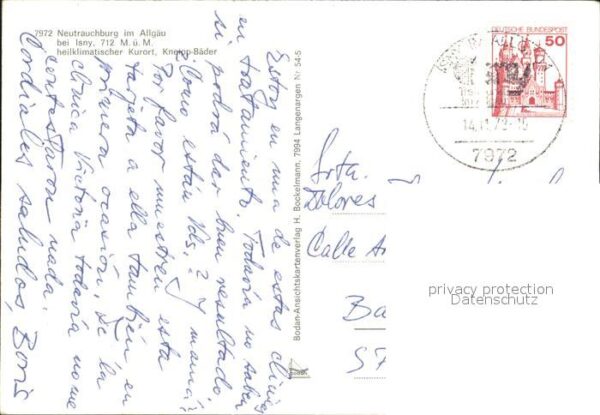 7972 Neutrauchburg im Allgäu
bei Isny, 712 M. ü. M.
heilklimatischer Kurort, Kneipp-Bäder
Estoy en una de estas clínic
en tratamiento. Todavía no saben
si podrá dar buen resultado.
¿Cómo están Vds.? Y mamá?
Por favor muestren esta
tarjeta a ella también en
primera ocasión. De la
clínica Victoria todavía no me
contestaron nada.
Cordiales saludos, Boris
Boden-Ansichtskartenverlag H. Bockelmann, 7994 Langenargen Nr. 54-5
DEUTSCHE BUNDESPOST
50
14.11.79-15
7972
Srta.
Dolores
Calle
Ba
57
privacy protection
Datenschutz